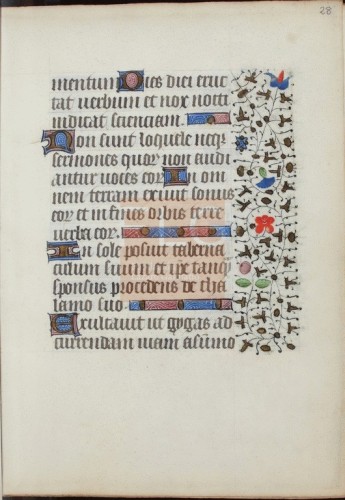 28
mentum Dies diei eruc
tat uerbum et nox nocti
indicat scienciam.
Non sunt loquele neqʒ
sermones quoꝝ non audi
antur uoces eoꝝ In om
nem terram exiuit sonus
eoꝝ et in fines orbis terre
uerba eoꝝ.
In sole posuit taberna
culum suum et ip̃e tanqʒ
sponsus procedens de tha
lamo suo.
Exultauit ut gygas ad
currendam uiam a sūmo